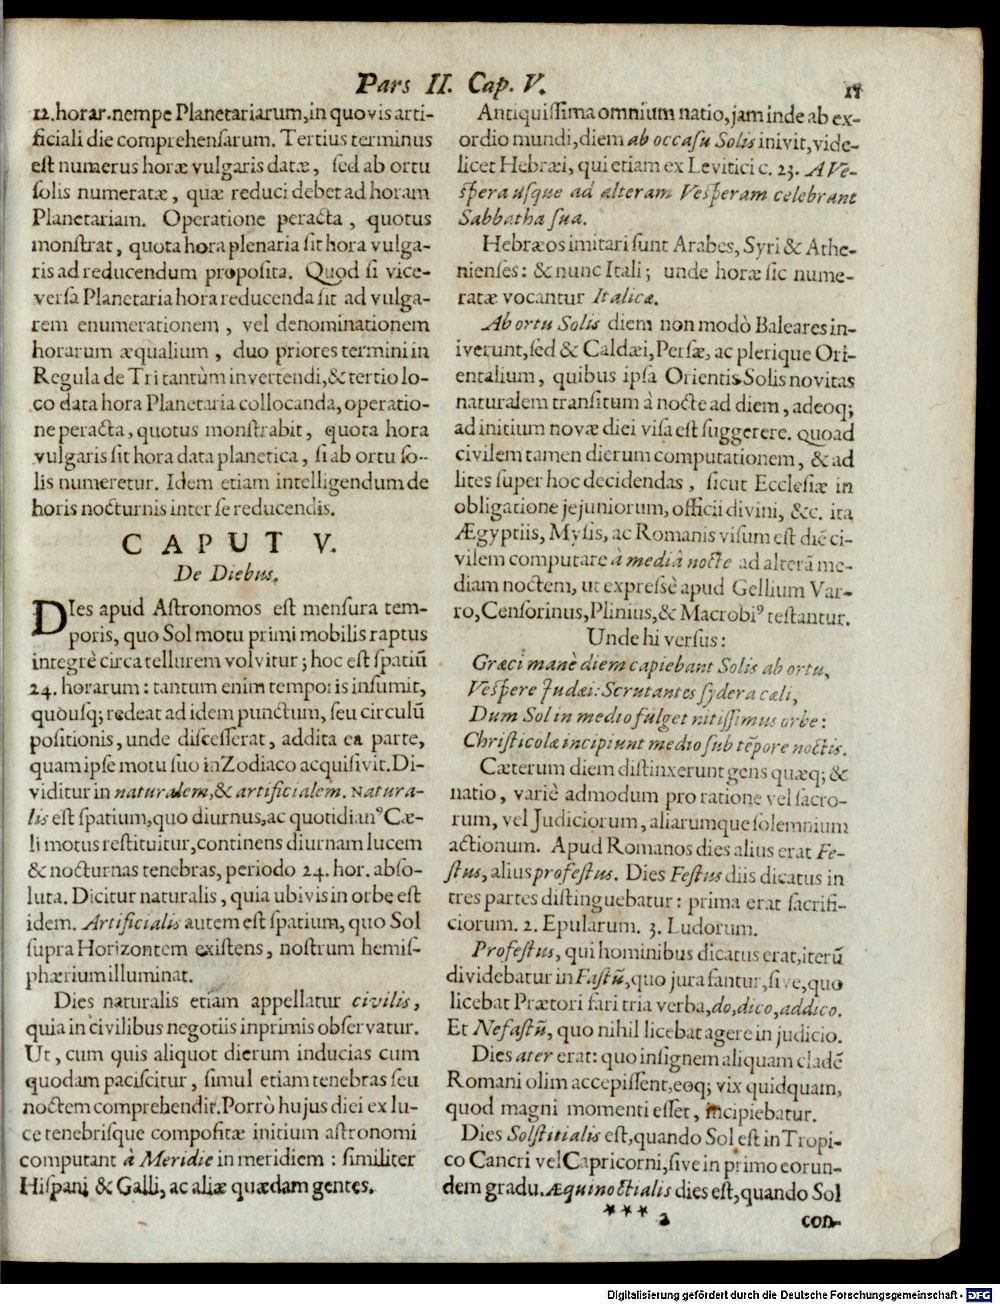 Pars II. Cap. V. 11
12. horar. nempe Planetariarum, in quovis arti-
ficiali die comprehensarum. Tertius terminus
est numerus horæ vulgaris datæ, sed ab ortu
solis numeratæ, quæ reduci debet ad horam
Planetariam. Operatione peracta, quotus
monstrat, quota hora plenaria sit hora vulga-
ris ad reducendum proposita. Quod si vice-
versa Planetaria hora reducenda sit ad vulga-
rem enumerationem, vel denominationem
horarum æqualium, duo priores termini in
Regula de Tri tantùm invertendi, & tertio lo-
co data hora Planetaria collocanda, operatio-
ne peracta, quotus monstrabit, quota hora
vulgaris sit hora data planetica, si ab ortu so-
lis numeretur. Idem etiam intelligendum de
horis nocturnis inter se reducendis.
CAPUT V.
De Diebus.
DIes apud Astronomos est mensura tem-
poris, quo Sol motu primi mobilis raptus
integrè circa tellurem volvitur; hoc est spatiũ
24. horarum: tantum enim temporis insumit,
quousq; redeat ad idem punctum, seu circulũ
positionis, unde discesserat, addita ea parte,
quam ipse motu suo in Zodiaco acquisivit. Di-
viditur in naturalem, & artificialem. Natura-
lis est spatium, quo diurnus, ac quotidianꝰ Cæ-
li motus restituitur, continens diurnam lucem
& nocturnas tenebras, periodo 24. hor. abso-
luta. Dicitur naturalis, quia ubivis in orbe est
idem. Artificialis autem est spatium, quo Sol
supra Horizontem existens, nostrum hemis-
phærium illuminat.
Dies naturalis etiam appellatur civilis,
quia in civilibus negotiis inprimis observatur.
Ut, cum quis aliquot dierum inducias cum
quodam paciscitur, simul etiam tenebras seu
noctem comprehendit. Porrò hujus diei ex lu-
ce tenebrisque compositæ initium astronomi
computant à Meridie in meridiem: similiter
Hispani & Galli, ac aliæ quædam gentes.
Antiquissima omnium natio, jam inde ab ex-
ordio mundi, diem ab occasu Solis inivit, vide-
licet Hebræi, qui etiam ex Levitici c. 23. A Ve-
spera usque ad alteram Vesperam celebrant
Sabbatha sua.
Hebræos imitari sunt Arabes, Syri & Athe-
nienses: & nunc Itali; unde horæ sic nume-
ratæ vocantur Italicæ.
Ab ortu Solis diem non modò Baleares in-
iverunt, sed & Caldæi, Persæ, ac plerique Ori-
entalium, quibus ipsa Orientis Solis novitas
naturalem transitum à nocte ad diem, adeoq;
ad initium novæ diei visa est suggerere. Quoad
civilem tamen dierum computationem, & ad
lites super hoc decidendas, sicut Ecclesiæ in
obligatione jejuniorum, officii divini, &c. ita
Ægyptiis, Mysis, ac Romanis visum est diẽ ci-
vilem computare à mediâ nocte ad alterã me-
diam noctem, ut expressè apud Gellium Var-
ro, Censorinus, Plinius, & Macrobiꝰ testantur.
Unde hi versus:
Græci manè diem capiebant Solis ab ortu,
Vespere Judæi: Scrutantes sydera cæli,
Dum Sol in medio fulget nitissimus orbe:
Christicolæ incipiunt medio sub tẽpore noctis.
Cæterum diem distinxerunt gens quæq; &
natio, variè admodum pro ratione vel sacro-
rum, vel Judiciorum, aliarumque solemnium
actionum. Apud Romanos dies alius erat Fe-
stus, alius profestus. Dies Festus diis dicatus in
tres partes distinguebatur: prima erat sacrifi-
ciorum. 2. Epularum. 3. Ludorum.
Profestus, qui hominibus dicatus erat, iterũ
dividebatur in Fastũ, quo jura fantur, sive, quo
licebat Prætori fari tria verba, do, dico, addico.
Et Nefastũ, quo nihil licebat agere in judicio.
Dies ater erat: quo insignem aliquam cladẽ
Romani olim accepissent, eoq; vix quidquam,
quod magni momenti esset, incipiebatur.
Dies Solstitialis est, quando Sol est in Tropi-
co Cancri vel Capricorni, sive in primo eorun-
dem gradu. Æquinoctialis dies est, quando Sol
*** 2 con-
Digitalisierung gefördert durch die Deutsche Forschungsgemeinschaft - DFG